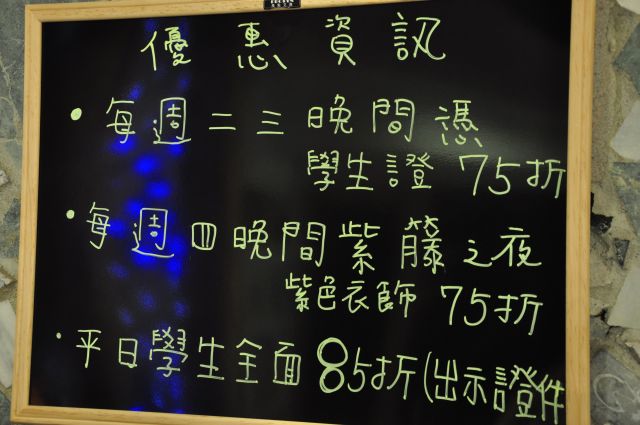 優惠資訊
• 每週二三晚間憑
學生證 75折
• 每週四晚間紫藤之夜
紫色衣飾 75折
• 平日學生全面85折(出示證件